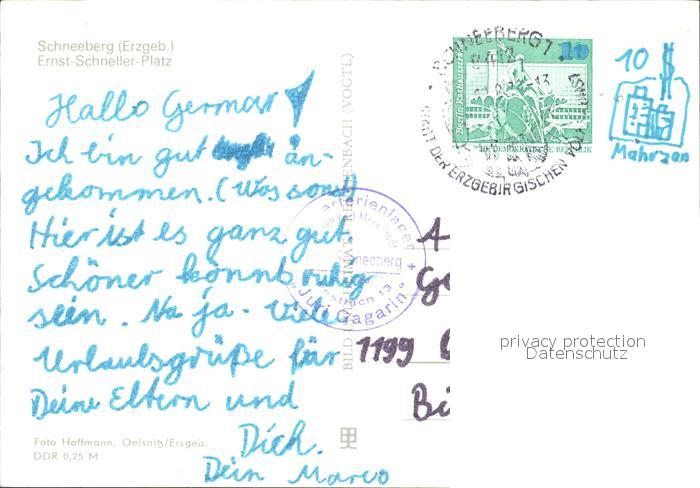 Schneeberg (Erzgeb.)
Ernst-Schneller-Platz
Hallo German!
Ich bin gut an-
gekommen. (Was sonst)
Hier ist es ganz gut.
Schöner könnts ruhig
sein. Na ja. Viele
Urlaubsgrüße für
Deine Eltern und
Dich.
Dein Marco
Foto Hoffmann, Oelsnitz/Erzgeb.
DDR 0,25 M
BILD UND HEIMAT REICHENBACH (VOGTL)
SCHNEEBERG 1
9412
STADT DER ERZGEBIRGISCHEN
10
Berlin Rathausstraße
DEUTSCHE DEMOKRATISCHE REPUBLIK
10
Mahrzan
Schneeberg
"Juri Gagarin"
1199
privacy protection
Datenschutz